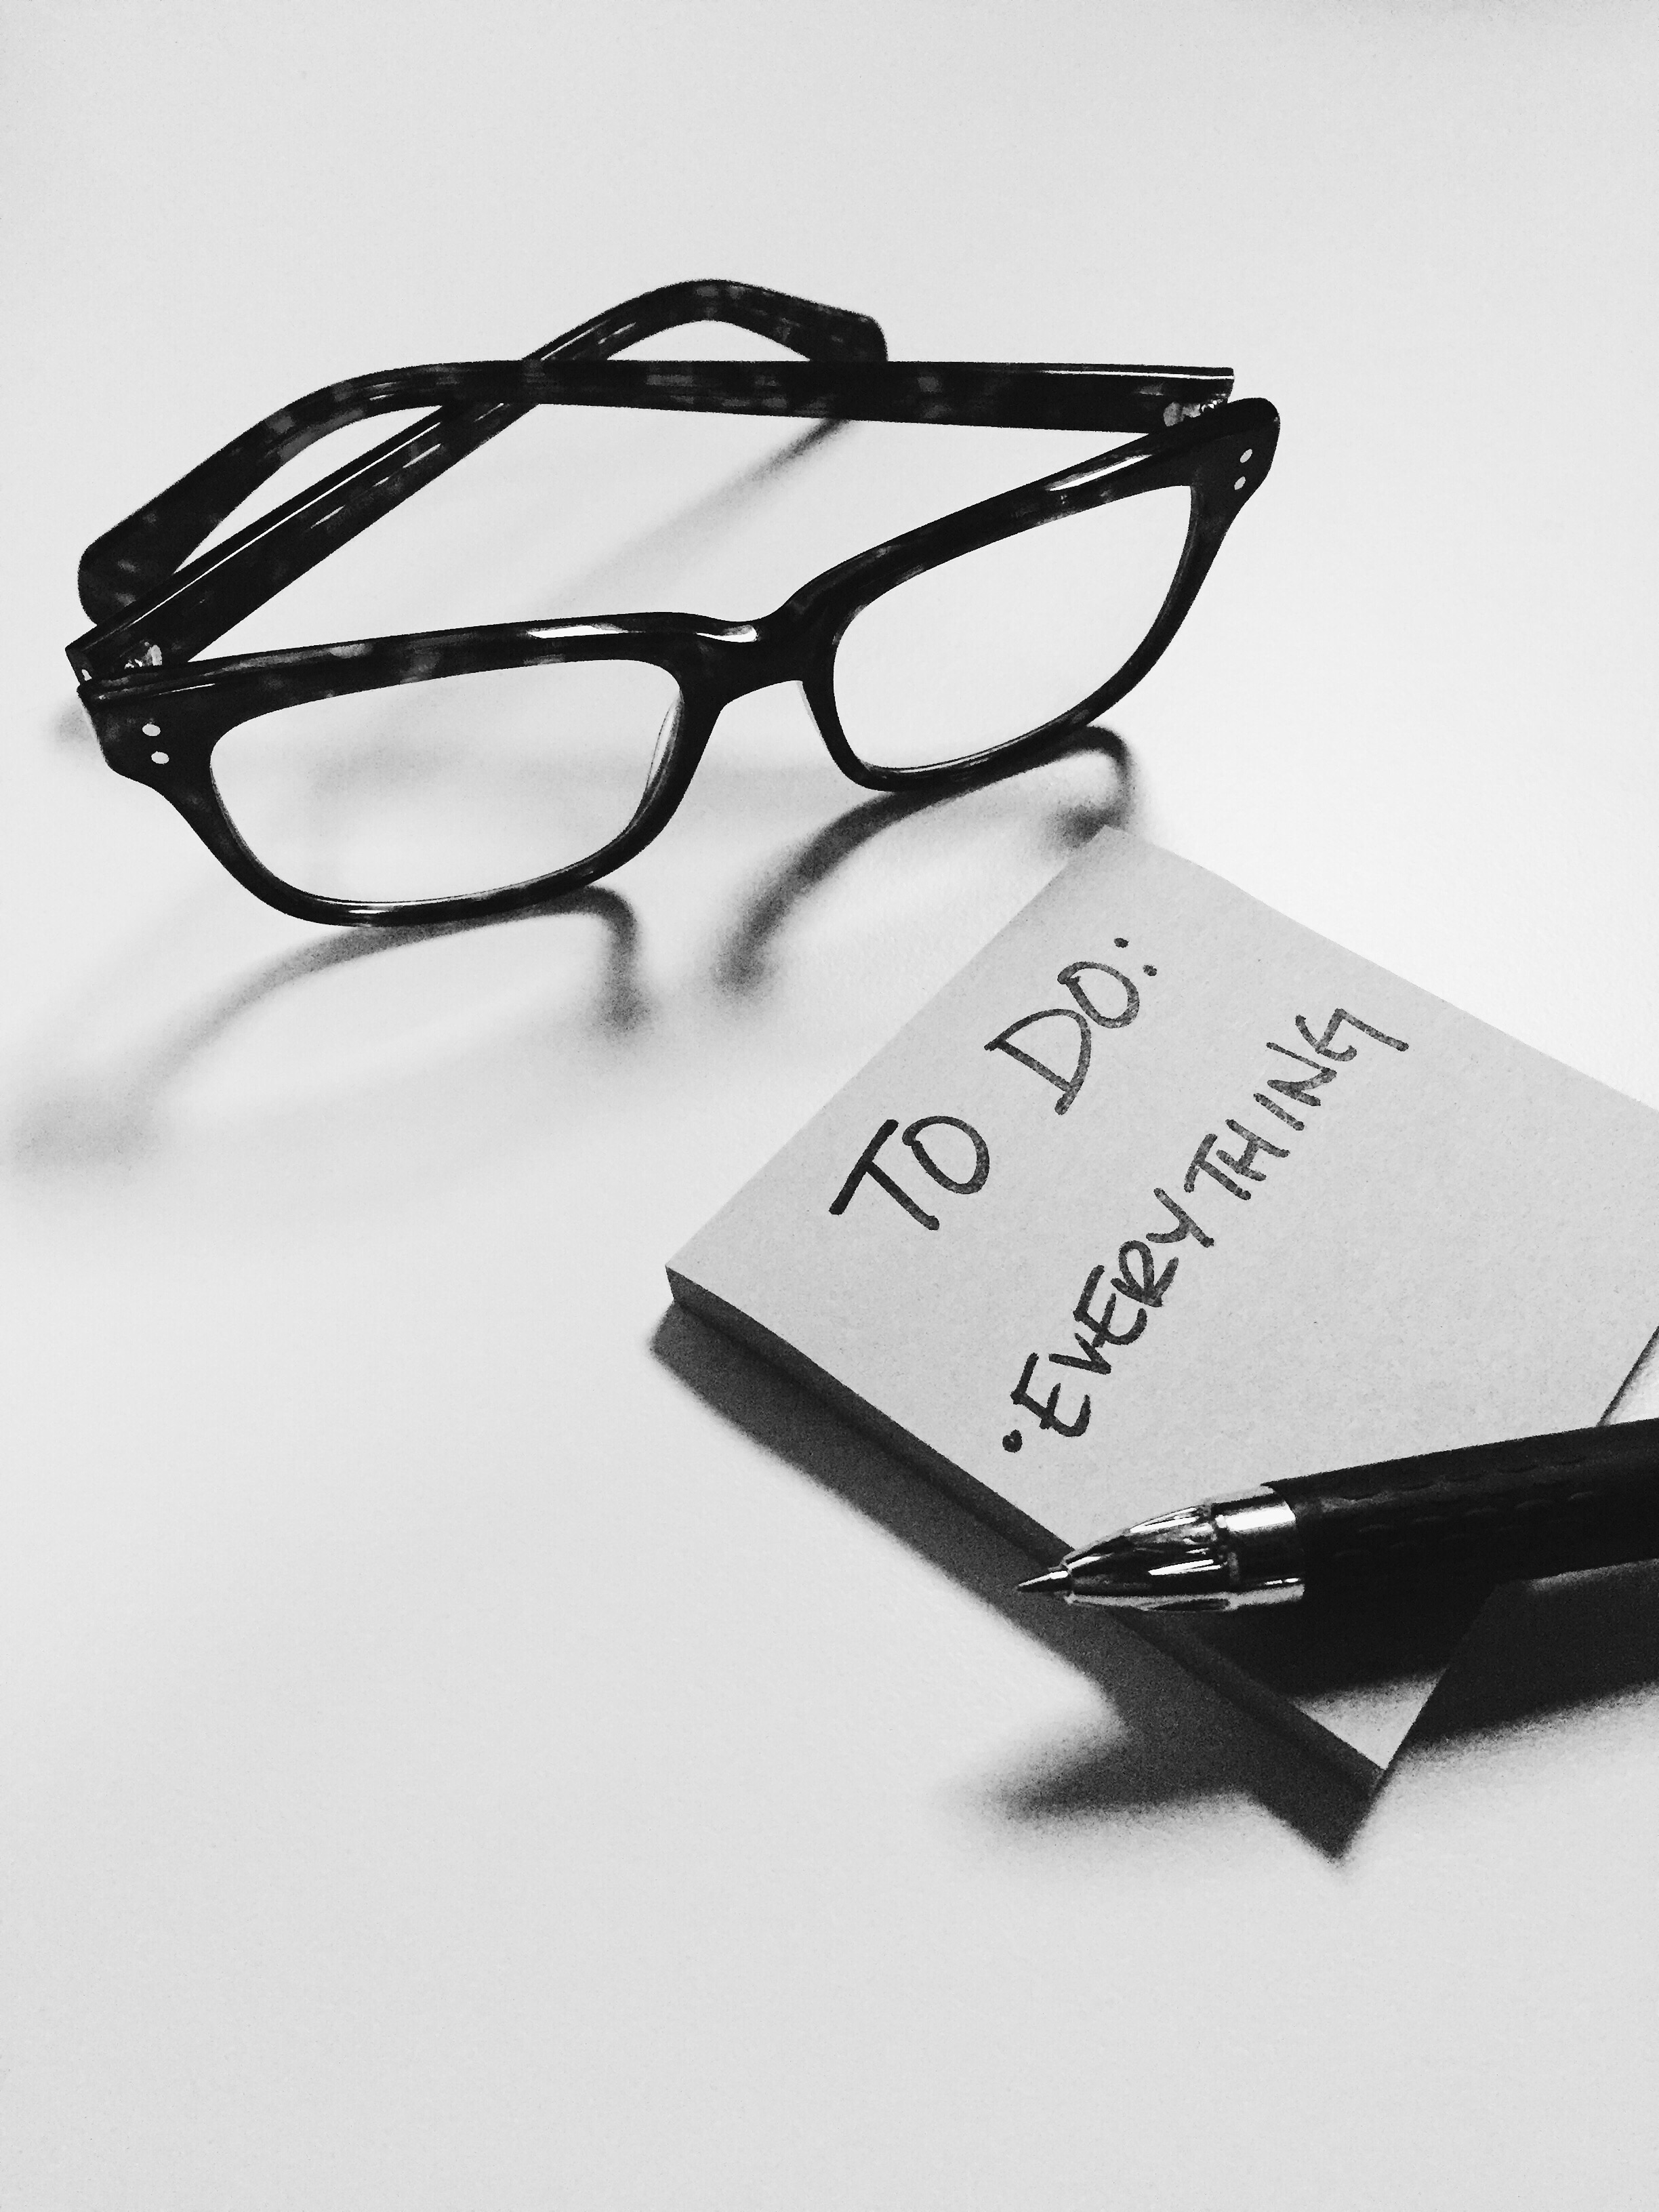 TO DO:
·EVERYTHING